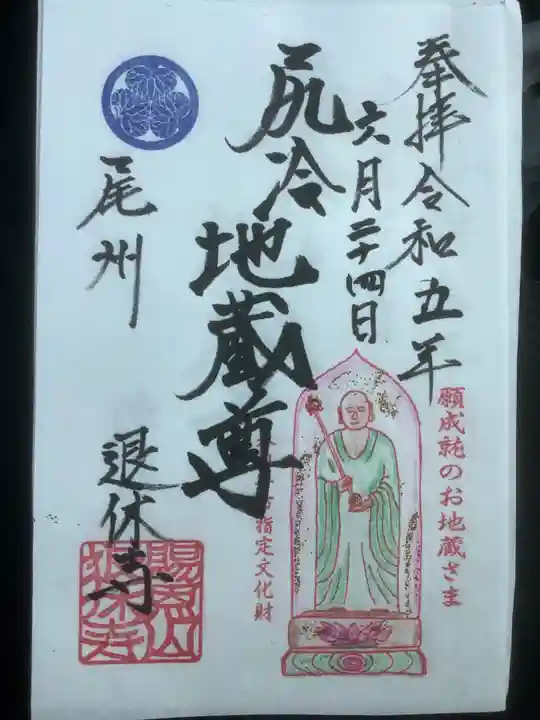 奉拝令和五年
六月二十四日
願成就のお地蔵さま
尻冷地蔵尊
市指定文化財
尾州
退休寺